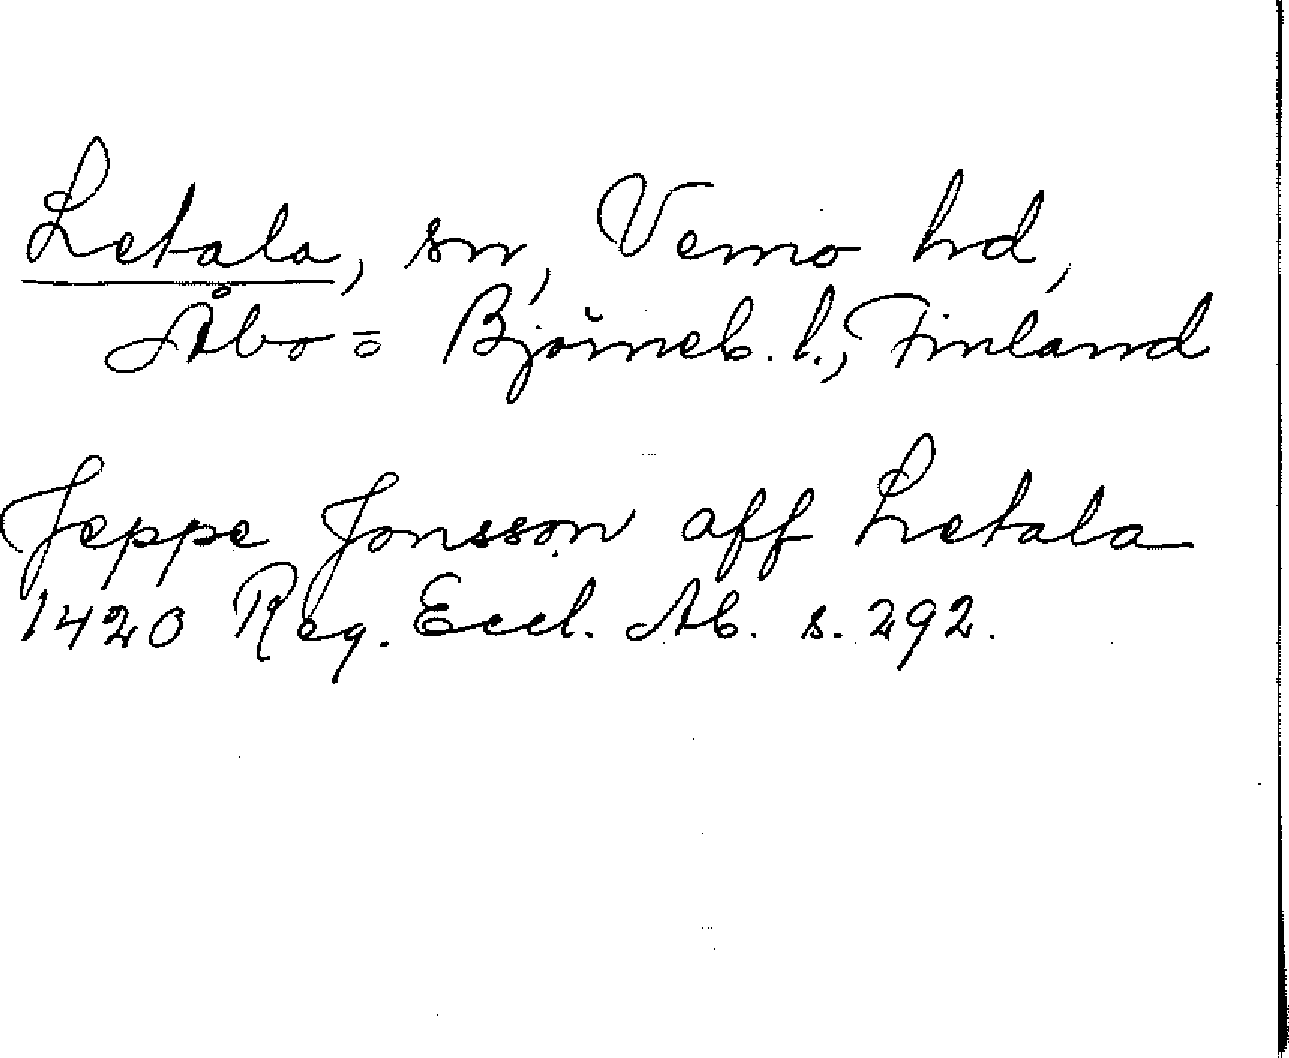 Letala, sn, Vemo hd,
Åbo = Björneb. l., Finland
Jeppe Jonsson aff Letala
1420 Reg. Eccl. Ab. s. 292.